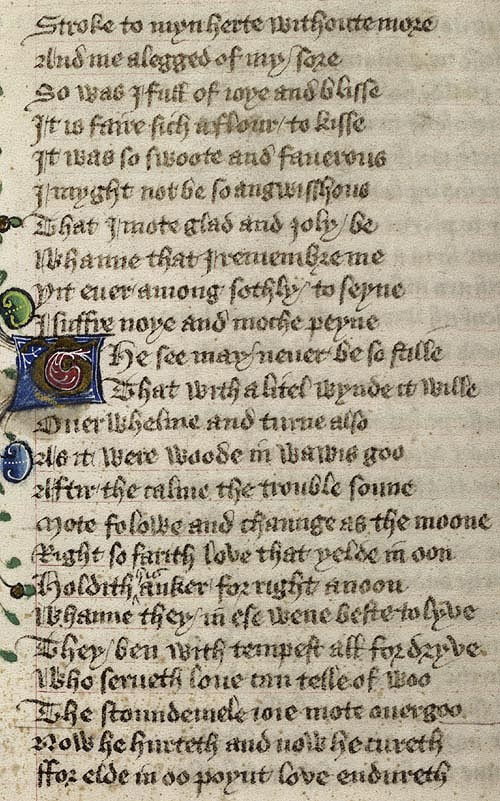 Stroke to myn herte withoute more
And me alegged of my / sore
So was I full of ioye and blisse
It is faire sich a flour / to kisse
It was so swoote and sauerous
I myght not be so angwisshous
That I mote glad and joly / be
Whanne that I remembre me
Yit euer among sothly / to seyne
I suffre noye and moche peyne
The see may / neuer be so stille
That with a litel wynde it wille
Ouerwhelme and turne also
As it were woode in wawis goo
Aftir the calme the trouble soune
Mote folowe and chaunge as the moone
Right so farith love that yelde in oon
Holdith his anker for right anoon
Whanne they / in ese wene beste to lyve
They / ben with tempest all fordryve
Who serueth loue can telle of woo
The stoundemele ioie mote ouergoo
Now he hurteth and now he cureth
ffor elde in oo poynt love endureth